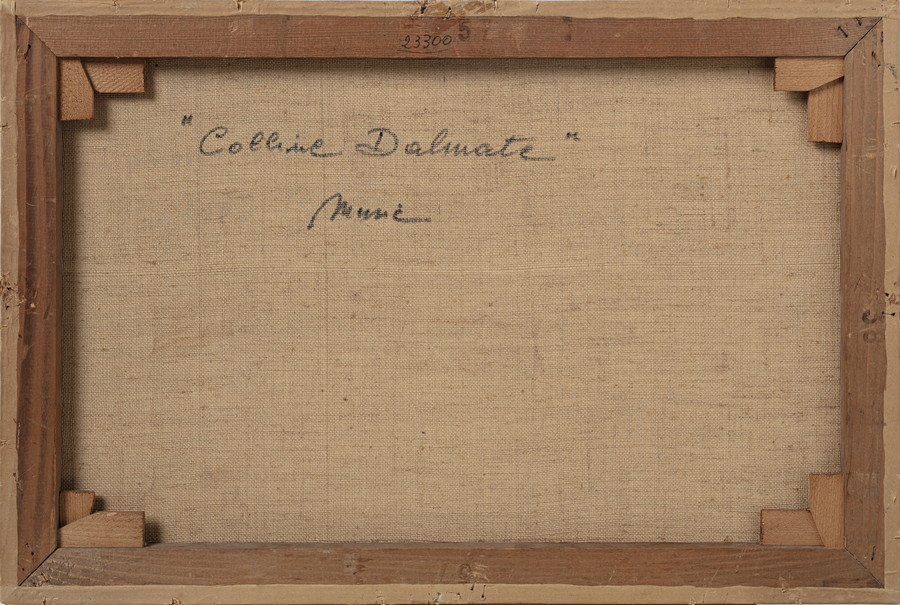 23300
"Colline Dalmate"
Music
38